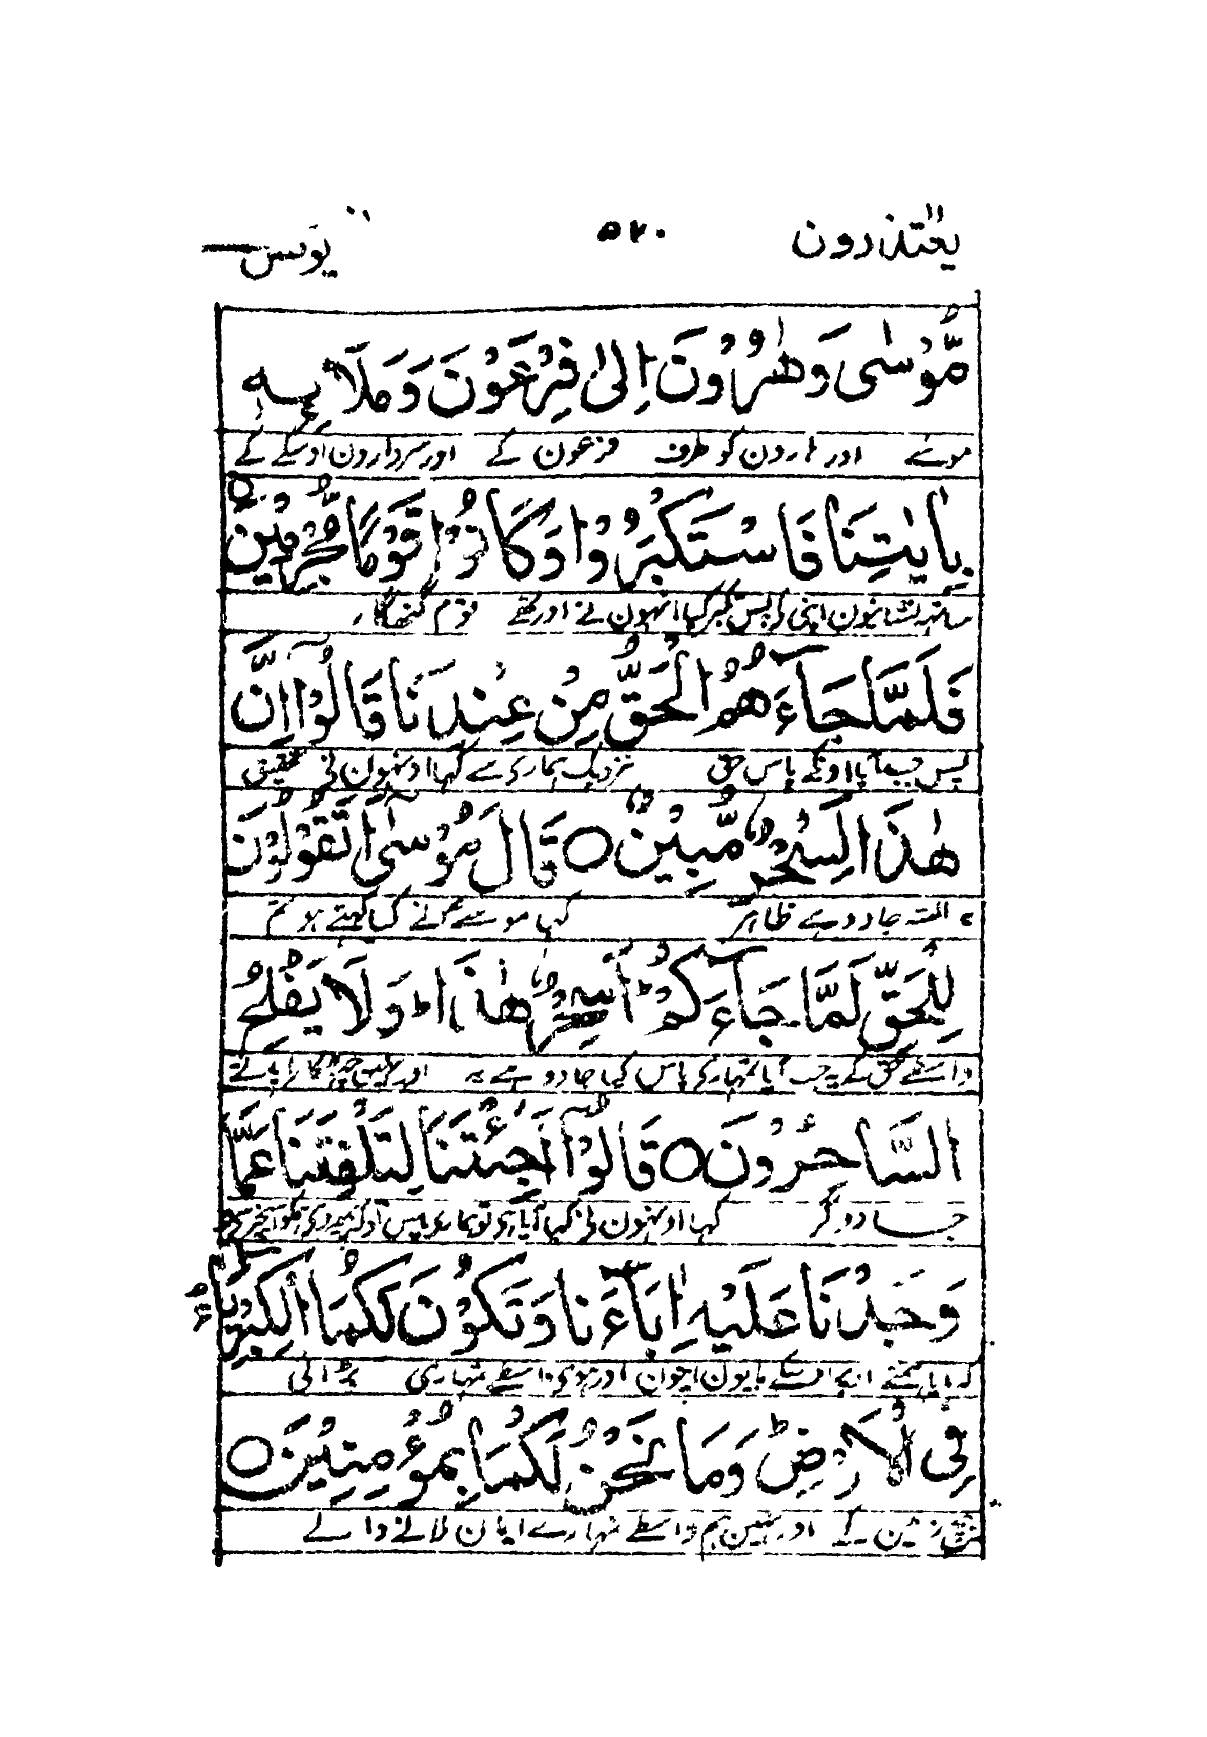 يعتذرون ۵۲۰ يونس
مُّوْسٰى وَهٰرُوْنَ اِلٰى فِرْعَوْنَ وَمَلَا۟ئِهٖ
موسے اور ہارون کو طرف فرعون کے اور سردارون اوسکے کے
بِاٰيٰتِنَا فَاسْتَكْبَرُوْا وَكَانُوْا قَوْمًا مُّجْرِمِيْنَ ○
ساتہہ نشانیون اپنی کے پس تکبر کیا انہون نے اور تھے قوم گنہگار
فَلَمَّا جَآءَهُمُ الْحَقُّ مِنْ عِنْدِنَا قَالُوْٓا اِنَّ
پس جب آیا اونکے پاس حق نزدیک ہماری سے کہا اونہون نی تحقیق
هٰذَا لَسِحْرٌ مُّبِيْنٌ ○ قَالَ مُوْسٰٓى اَتَقُوْلُوْنَ
یہ البتہ جادو ہے ظاہر کہا موسے نے کیا کہتے ہو تم
لِلْحَقِّ لَمَّا جَآءَكُمْ ط اَسِحْرٌ هٰذَا ط وَلَا يُفْلِحُ
واسطے حق کے جب آیا تمہاری پاس کیا جادو ہے یہ اور نہین چھٹکارا پاتے
السَّاحِرُوْنَ ○ قَالُوْٓا اَجِئْتَنَا لِتَلْفِتَنَا عَمَّا
جادوگر کہا اونہون نی کیا آیا ہی تو ہماری پاس تو کہ پھیر دی ہمکو اوس چیز سی
وَجَدْنَا عَلَيْهِ اٰبَآءَنَا وَتَكُوْنَ لَكُمَا الْكِبْرِيَآءُ
کہ پایا ہمنے اوپر اوسکے باپون اپنون اور ہووی واسطے تمہاری بڑائی
فِى الْاَرْضِ ط وَمَا نَحْنُ لَكُمَا بِمُؤْمِنِيْنَ ○
بیچ زمین کے اور نہین ہم واسطے تمہارے ایمان لانے والے